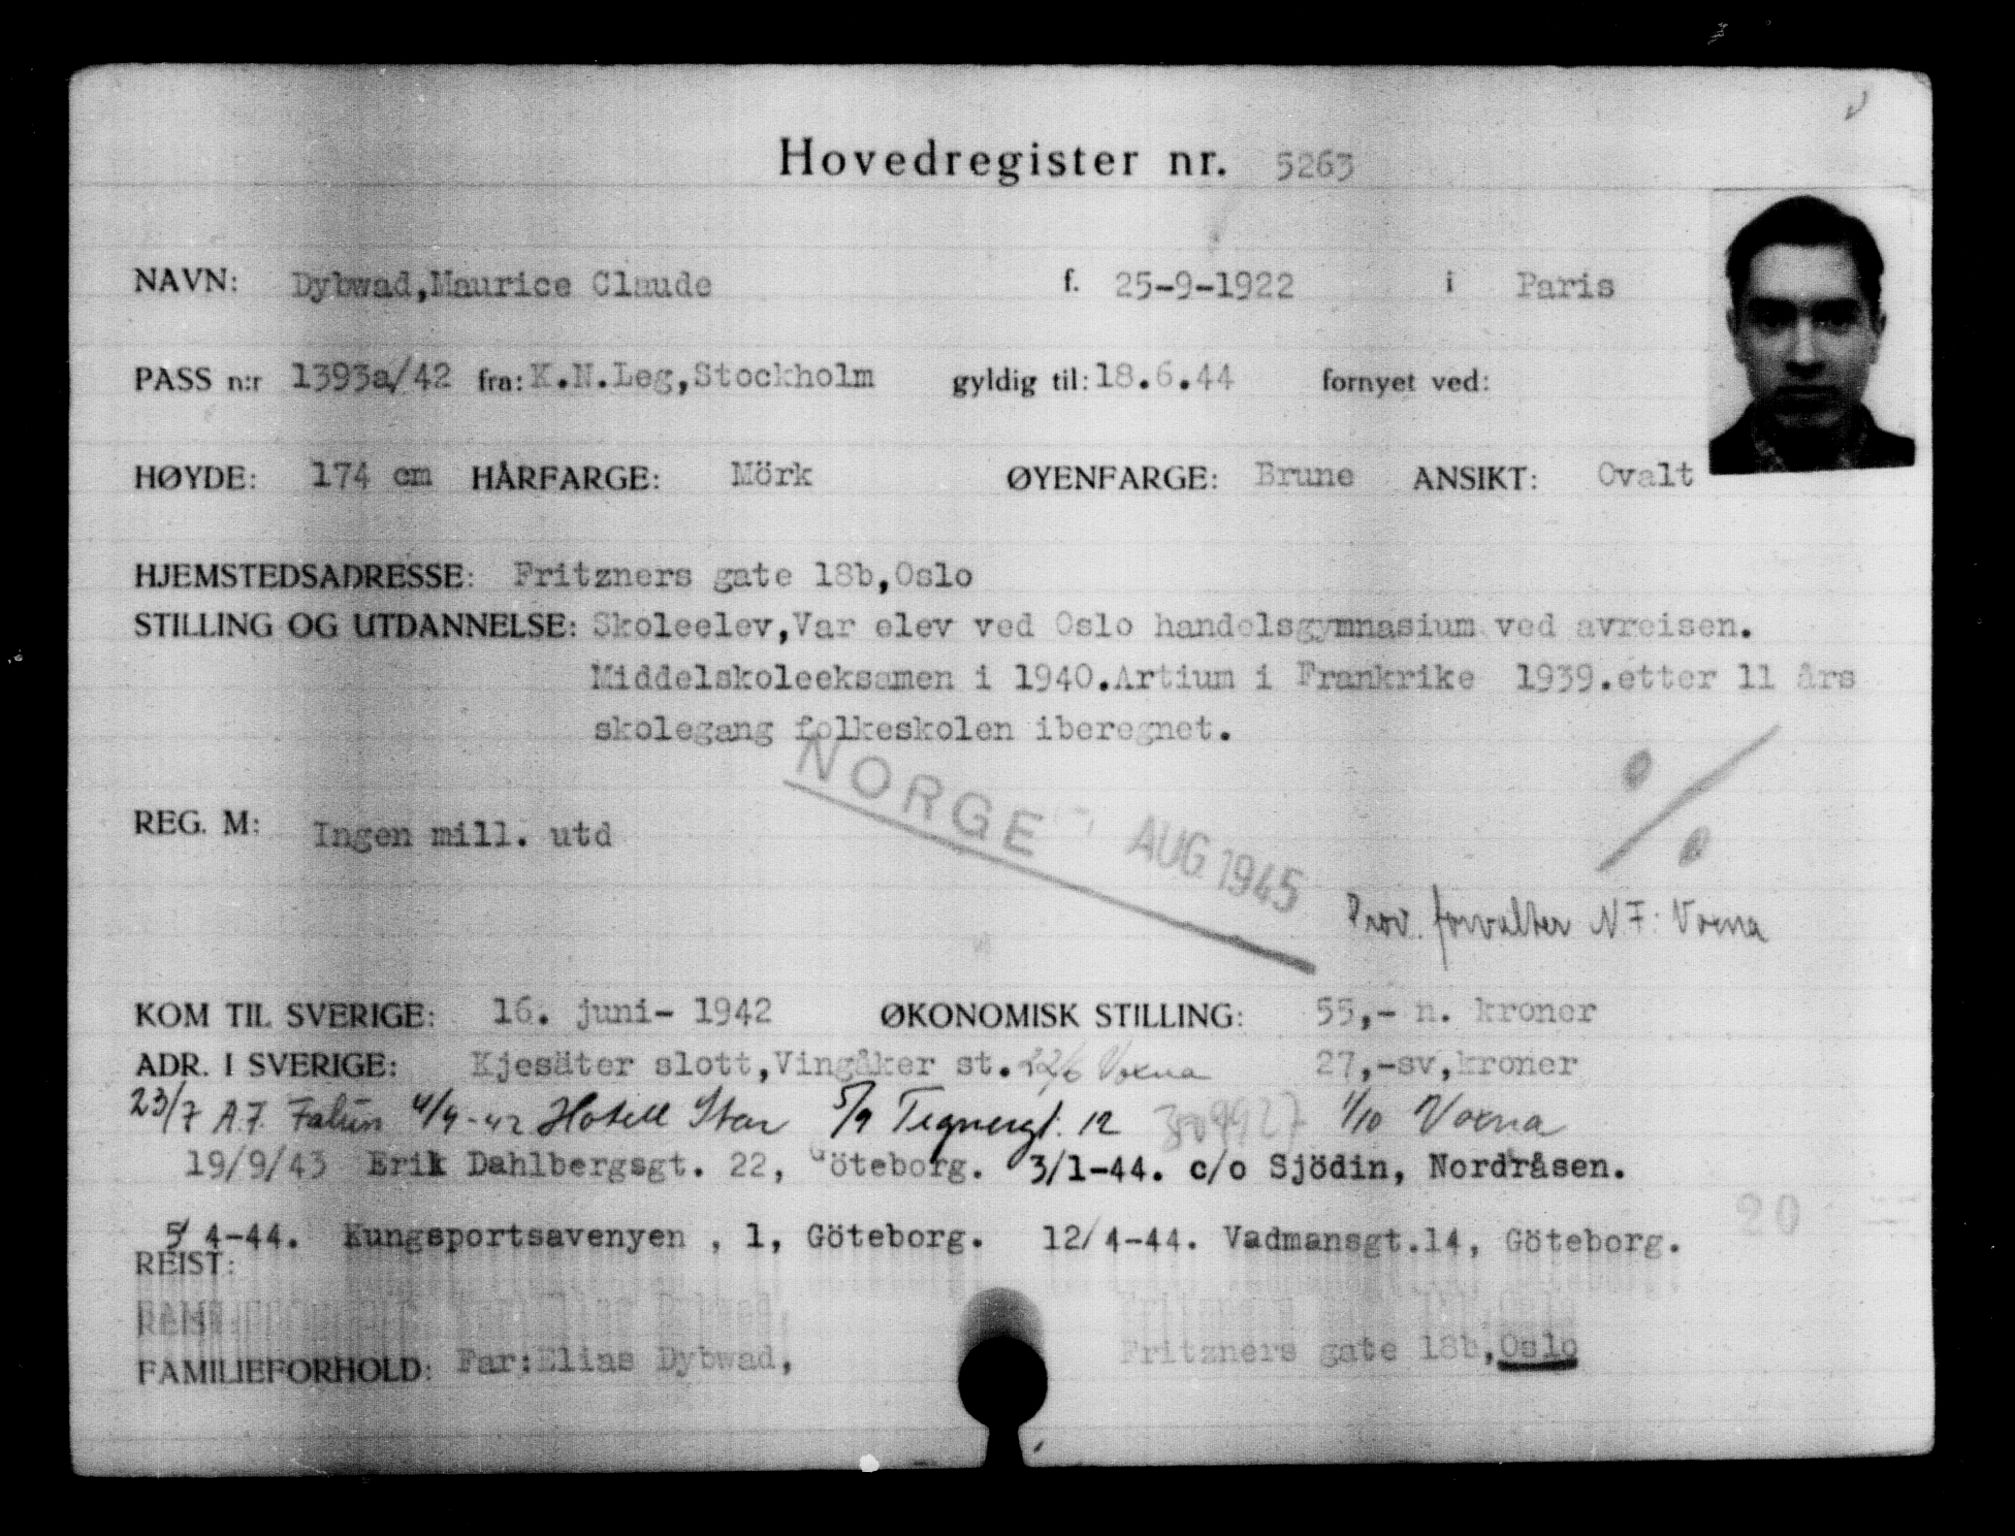 Hovedregister nr. 5263
NAVN: Dybwad,Maurice Claude f. 25-9-1922 i Paris
PASS n:r 1393a/42 fra: K.N.Leg,Stockholm gyldig til: 18.6.44 fornyet ved:
HØYDE: 174 cm HÅRFARGE: Mörk ØYENFARGE: Brune ANSIKT: Ovalt
HJEMSTEDSADRESSE: Fritzners gate 18b,Oslo
STILLING OG UTDANNELSE: Skoleelev,Var elev ved Oslo handelsgymnasium ved avreisen.
Middelskoleeksamen i 1940.Artium i Frankrike 1939.etter 11 års
skolegang folkeskolen iberegnet.
NORGE AUG 1945
REG. M: Ingen mill. utd
Prov. forvalter N.F. Voxna
KOM TIL SVERIGE: 16. juni- 1942 ØKONOMISK STILLING: 55,- n. kroner
ADR. I SVERIGE: Kjesäter slott,Vingåker st. 22/6 Voxna 27,-sv,kroner
23/7 A.F. Falun 4/9-42 Hotell Star 5/9 Tegnergt. 12 309927 1/10 Voxna
19/9/43 Erik Dahlbergsgt. 22, Göteborg. 3/1-44. c/o Sjödin, Nordråsen.
5/4-44. Kungsportsavenyen , 1, Göteborg. 12/4-44. Vadmansgt.14, Göteborg.
20
REIST:
FAMILIEFORHOLD: Far:Elias Dybwad, Fritzners gate 18b,Oslo